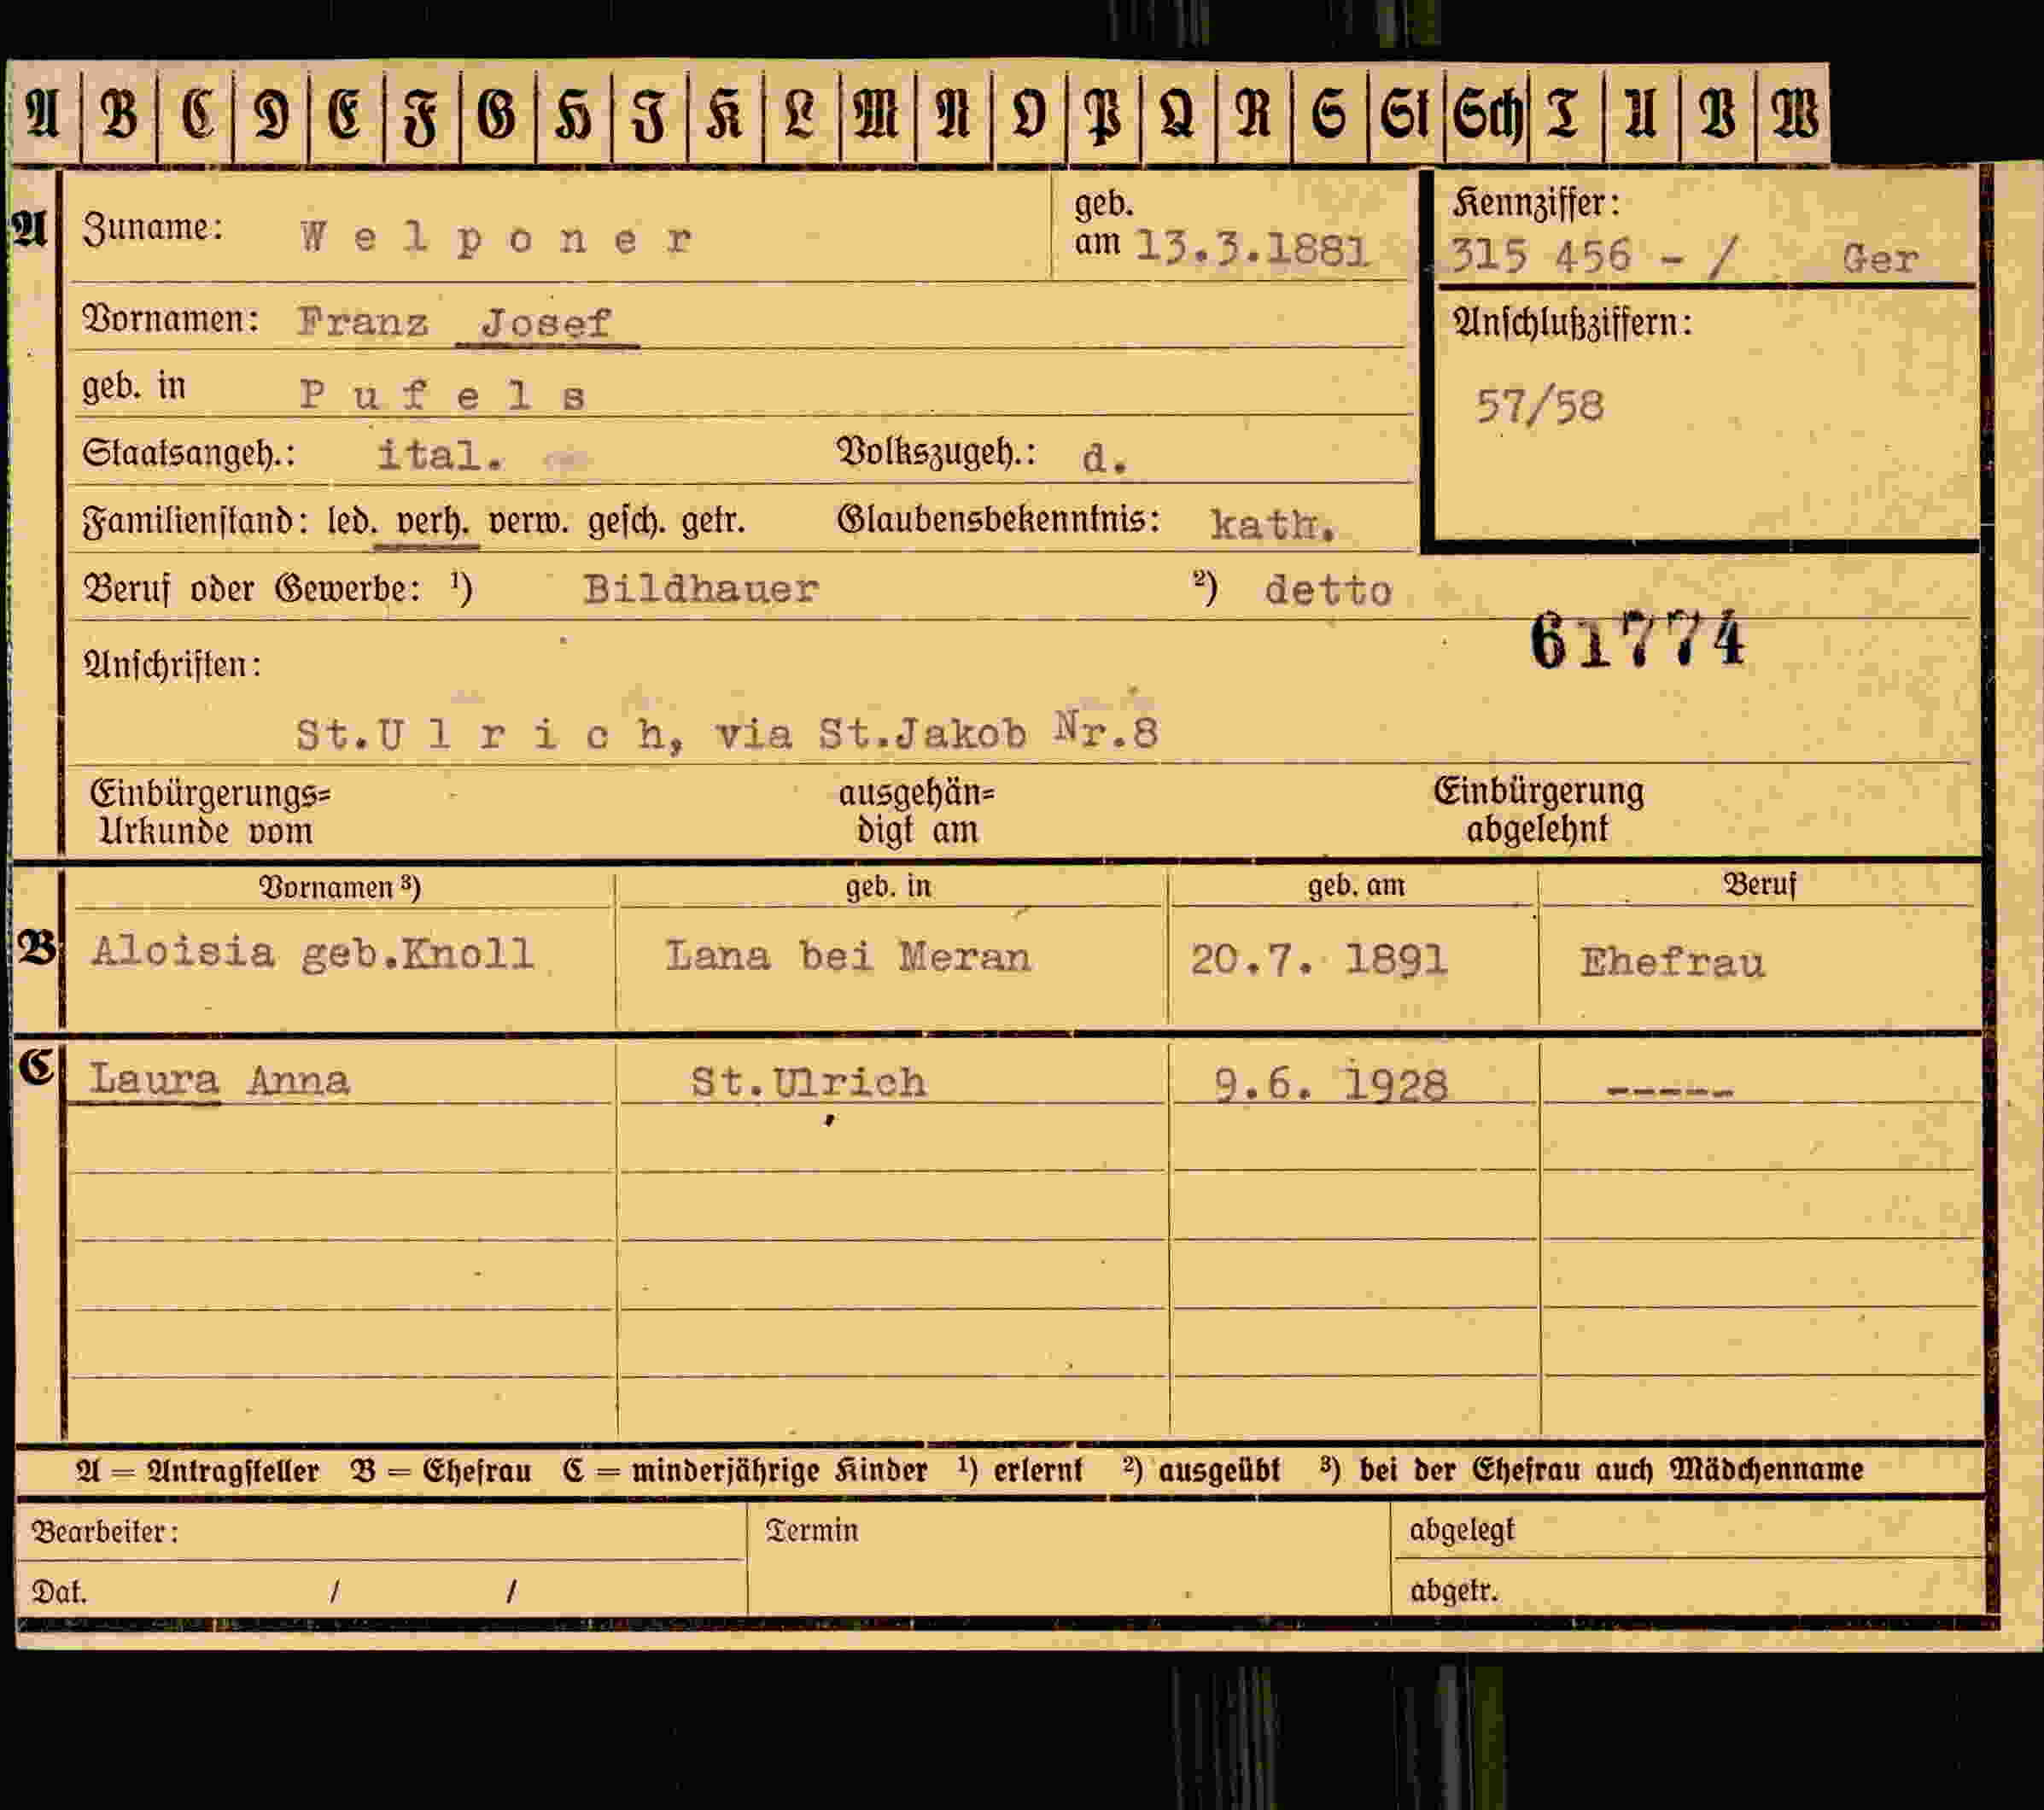 A B C D E F G H J K L M N O P Q R S St Sch T U V W
A Zuname: Welponer geb. am 13.3.1881 Kennziffer: 315 456 - / Ger
Vornamen: Franz Josef Anschlußziffern:
geb. in Pufels 57/58
Staatsangeh.: ital. Volkszugeh.: d.
Familienstand: led. verh. verw. gesch. getr. Glaubensbekenntnis: kath.
Beruf oder Gewerbe: ¹) Bildhauer ²) detto
61774
Anschriften:
St.Ulrich, via St.Jakob Nr.8
Einbürgerungs= ausgehän= Einbürgerung
Urkunde vom digt am abgelehnt
Vornamen ³) geb. in geb. am Beruf
B Aloisia geb.Knoll Lana bei Meran 20.7. 1891 Ehefrau
C Laura Anna St.Ulrich 9.6. 1928 -----
A = Antragsteller B = Ehefrau C = minderjährige Kinder ¹) erlernt ²) ausgeübt ³) bei der Ehefrau auch Mädchenname
Bearbeiter: Termin abgelegt
Dat. / / abgetr.